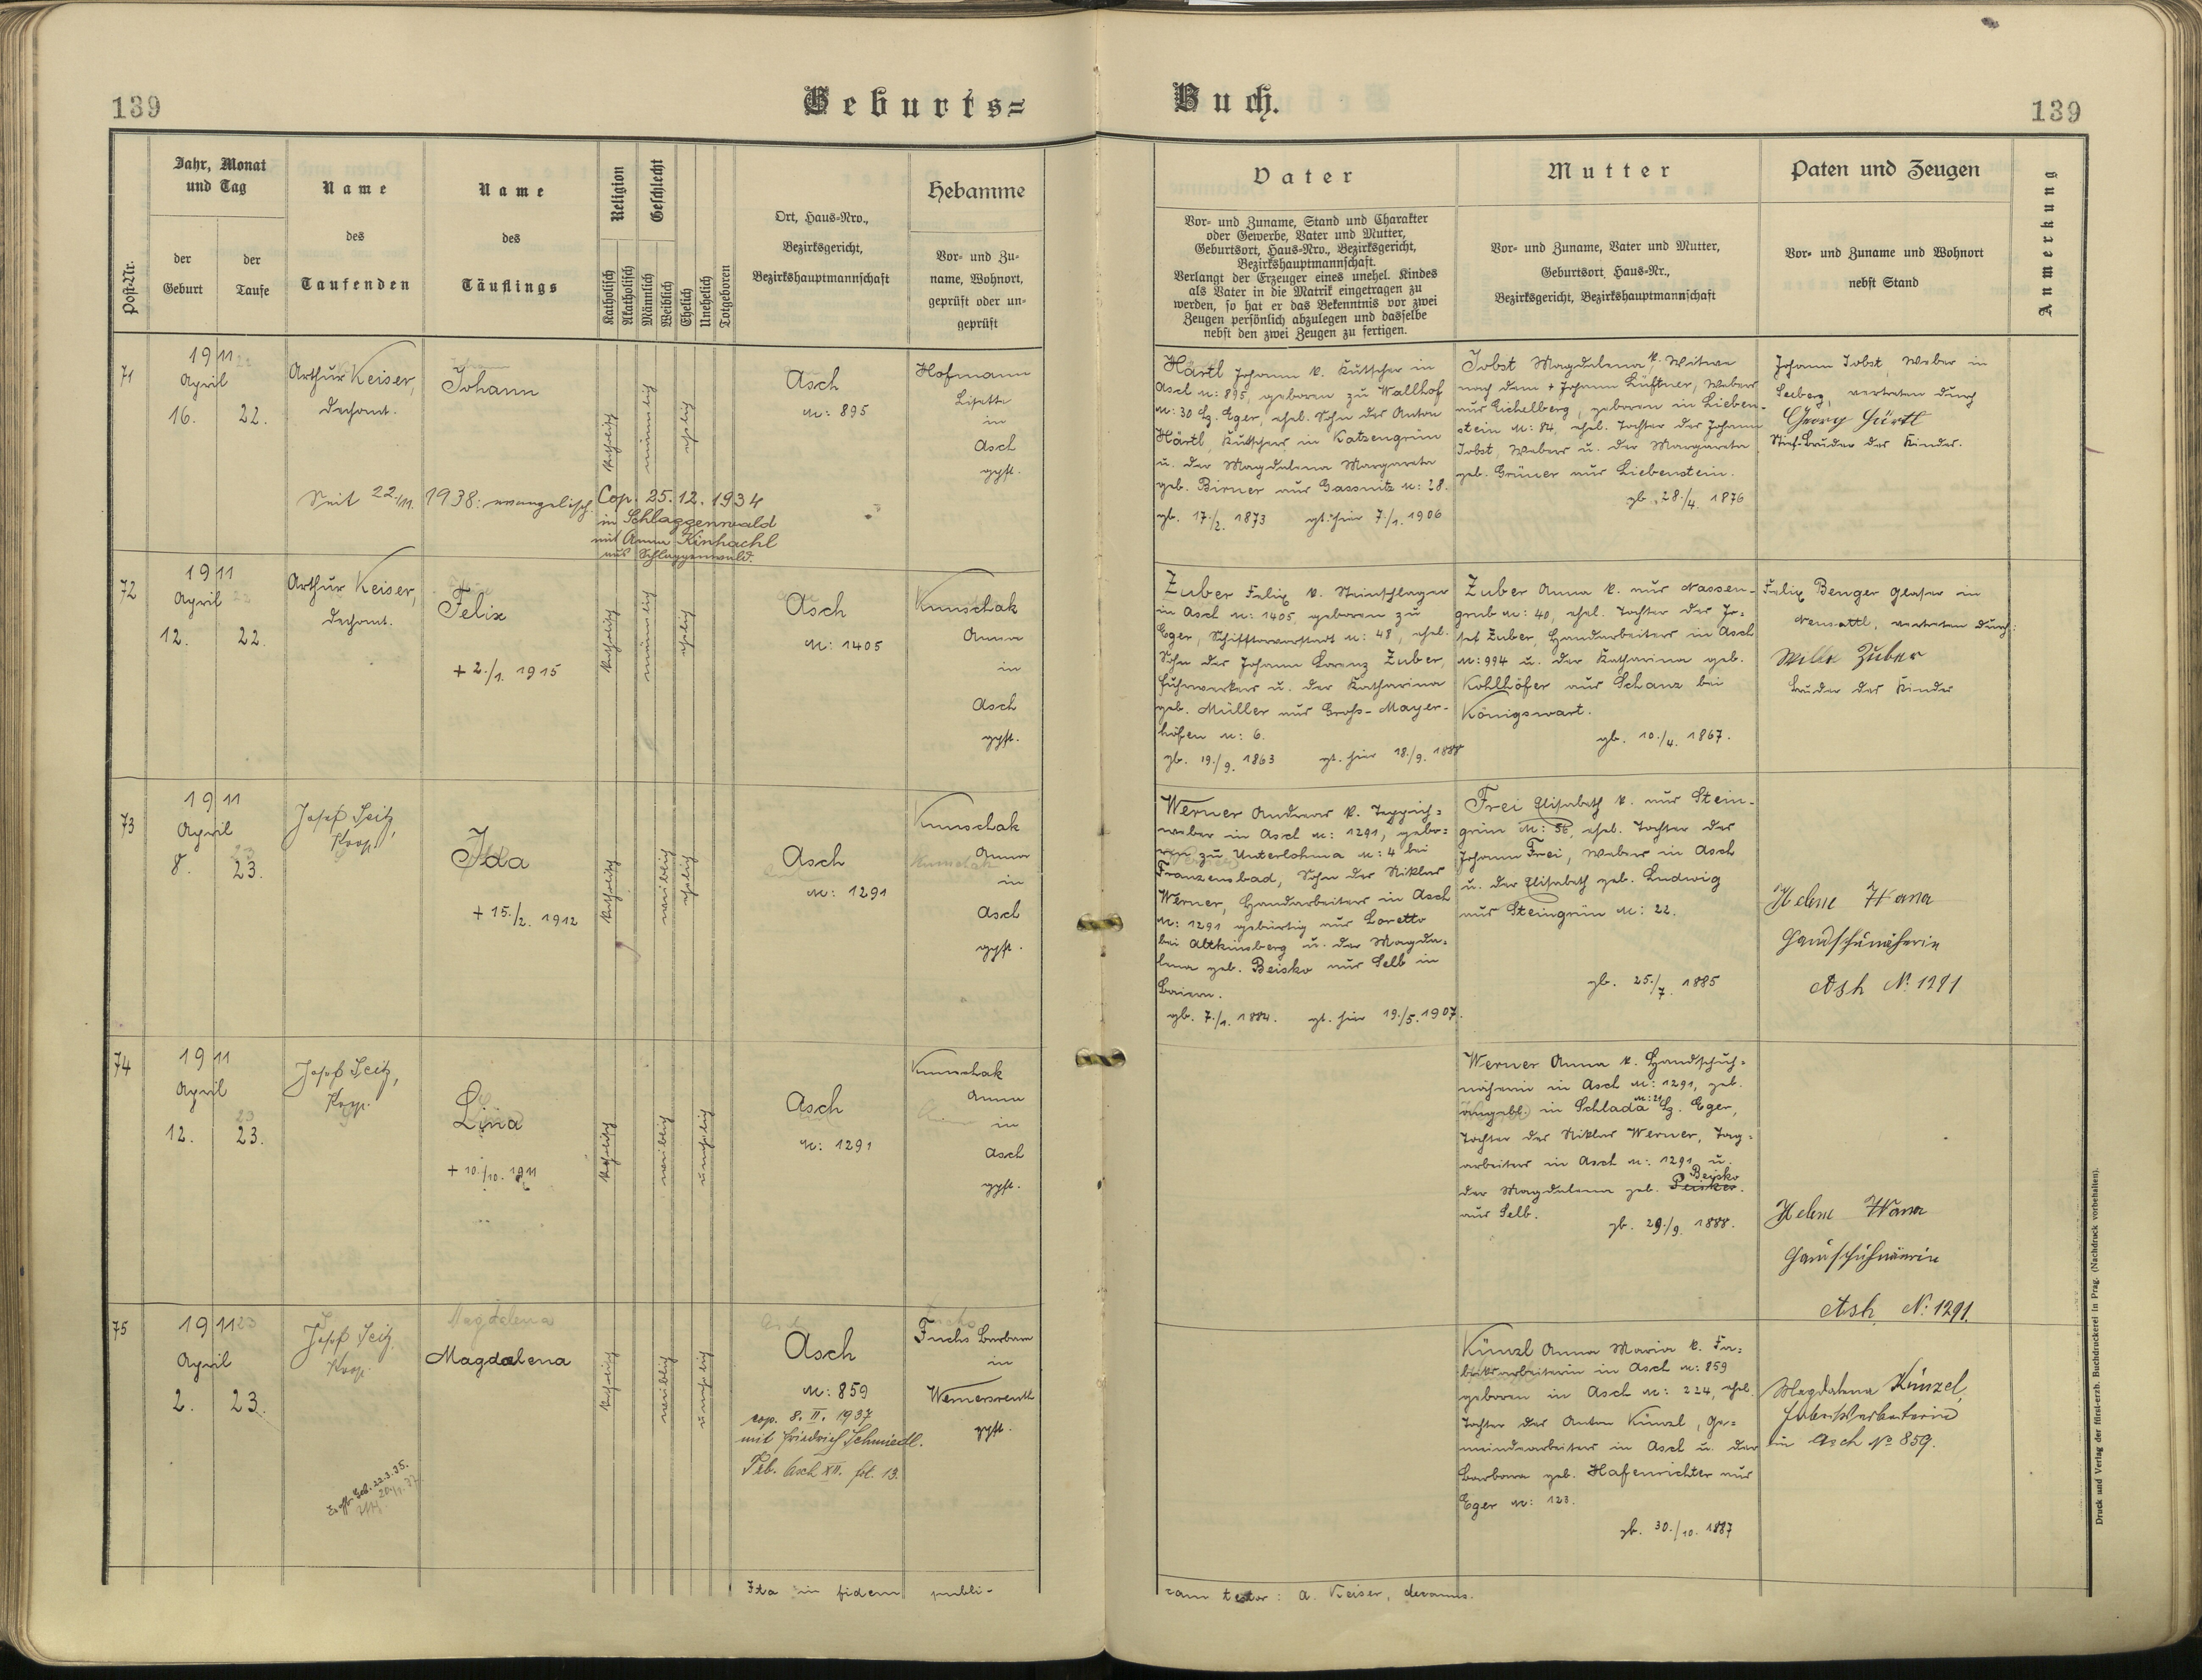 139
Geburts=
Buch.
139
Post-Nr.
Jahr, Monat
und Tag
der
Geburt
der
Taufe
Name
des
Taufenden
Name
des
Täuflings
Religion
Katholisch
Akatholisch
Geschlecht
Männlich
Weiblich
Ehelich
Unehelich
Totgeboren
Ort, Haus-Nro.,
Bezirksgericht,
Bezirkshauptmannschaft
Hebamme
Vor- und Zu-
name, Wohnort,
geprüft oder un-
geprüft
Vater
Vor- und Zuname, Stand und Charakter
oder Gewerbe, Vater und Mutter,
Geburtsort, Haus-Nro., Bezirksgericht,
Bezirkshauptmannschaft.
Verlangt der Erzeuger eines unehel. Kindes
als Vater in die Matrik eingetragen zu
werden, so hat er das Bekenntnis vor zwei
Zeugen persönlich abzulegen und dasselbe
nebst den zwei Zeugen zu fertigen.
Mutter
Vor- und Zuname, Vater und Mutter,
Geburtsort, Haus-Nr.,
Bezirksgericht, Bezirkshauptmannschaft
Paten und Zeugen
Vor- und Zuname und Wohnort
nebst Stand
Anmerkung
71
1911
April
16. 22.
Arthur Keiser,
Dechant.
Johann
katholisch
männlich
ehelich
Asch
N: 895
Hofmann
Lisette
in
Asch
gpft.
Seit 22./11. 1938: evangelisch.
Cop. 25. 12. 1934
in Schlaggenwald
mit Anna Kinhachl
aus Schlaggenwald.
Härtl Johann k. Kutscher in
Asch N: 895, geboren zu Wallhof
N: 30 Bz. Eger, ehel. Sohn des Anton
Härtl, Kutschers in Katzengrün
u. der Magdalena Margareta
geb. Birner aus Gassnitz N: 28.
gb. 17./2. 1873 gt. hier 7./1. 1906
Jobst Magdalena k. Witwe
nach dem + Johann Lüftner, Webers
aus Eichelberg, geboren in Lieben-
stein N: 84, ehel. Tochter des Johann
Jobst, Webers u. der Margareta
geb. Grüner aus Liebenstein.
gb. 28./4. 1876
Johann Jobst, Weber in
Seeberg, vertreten durch
Georg Härtl
Stief-Bruder des Kindes.
72
1911
April
12. 22.
Arthur Keiser,
Dechant.
Felix
+ 2./1. 1915
katholisch
männlich
ehelich
Asch
N: 1405
Kunschak
Anna
in
Asch
gpft.
Zuber Felix k. Steinschlager
in Asch N: 1405, geboren zu
Eger, Schifftorvorstadt N: 48, ehel.
Sohn des Johann Lorenz Zuber,
Fuhrwerkers u. der Katharina
geb. Müller aus Gross-Mayer-
höfen N: 6.
gb. 19./9. 1863 gt. hier 18./9. 1888
Zuber Anna k. aus Nassen-
grub N: 40, ehel. Tochter des Jo=
sef Zuber, Handarbeiters in Asch
N: 994 u. der Katharina geb.
Kohlhöfer aus Schanz bei
Königswart.
gb. 10./4. 1867.
Felix Benger Glaser in
Neusattl, vertreten durch:
Willi Zuber
Bruder des Kindes
73
1911
April
8. 23.
Josef Seitz,
Koop.
Ida
+ 15./2. 1912
katholisch
weiblich
ehelich
Asch
N: 1291
Kunschak
Anna
in
Asch
gpft.
Werner Andreas k. Teppich=
weber in Asch N: 1291, gebo=
ren zu Unterlohma N: 4 bei
Franzensbad, Sohn des Niklas
Werner, Handarbeiters in Asch
N: 1291 gebürtig aus Loretto
bei Altkinsberg u. der Magda=
lena geb. Beisko aus Selb in
Baiern.
gb. 7./1. 1884. gt. hier 19./5. 1907.
Frei Elisabeth k. aus Stein-
grün N: 56, ehel. Tochter des
Johann Frei, Webers in Asch
u. der Elisabeth geb. Ludwig
aus Steingrün N: 22.
gb. 25./7. 1885
Helene Wana
Handschunäherin
Ash N: 1291
74
1911
April
12. 23.
Josef Seitz,
Koop.
Lina
+ 10./10. 1911
katholisch
weiblich
unehelich
Asch
N: 1291
Kunschak
Anna
in
Asch
gpft.
Werner Anna k. Handschuh=
näherin in Asch N: 1291, geb.
angebl. in Schlada N: 21 Bz. Eger,
Tochter des Niklas Werner, Tag=
arbeiters in Asch N: 1291 u.
der Magdalena geb. Beisko
aus Selb.
gb. 29./9. 1888.
Helene Wana
Handschuhnäerin
Ash N: 1291.
75
1911
April
2. 23.
Josef Seitz,
Koop.
Magdalena
katholisch
weiblich
unehelich
Asch
N: 859
cop. 8. II. 1937
mit Friedrich Schmiedl.
Pfb. Asch XII. fol. 13.
Fuchs Barbara
in
Wernersreuth
gpft.
Künzl Anna Maria k. Fa=
briksarbeiterin in Asch N: 859
geboren in Asch N: 224, ehel.
Tochter des Anton Künzl, Ge=
meindearbeiters in Asch u. der
Barbara geb. Hafenrichter aus
Eger N: 123.
gb. 30./10. 1887
Magdalena Künzel,
Fabriksarbeiterin
in Asch No 859.
Ita in fidem publi-
cam testor: A. Keiser, decanus.
Druck und Verlag der fürst-erzb. Buchdruckerei in Prag. (Nachdruck vorbehalten).